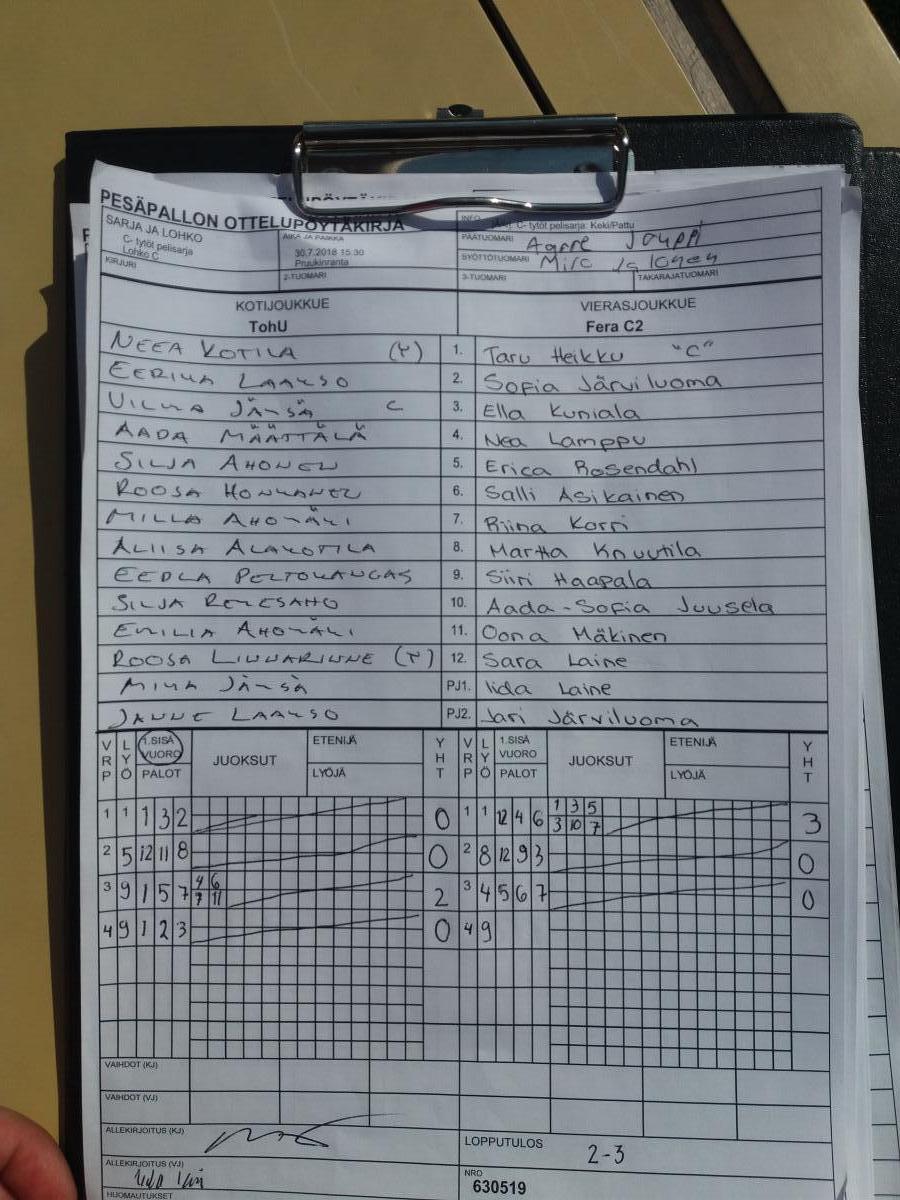 PESÄPALLON OTTELUPÖYTÄKIRJA
SARJA JA LOHKO
C- tytöt pelisarja
Lohko C
AIKA JA PAIKKA
30.7.2018 15.30
Pruukinranta
INFO C- tytöt pelisarja: Keki/Pattu
PÄÄTUOMARI
SYÖTTÖTUOMARI
KIRJURI
2-TUOMARI
3-TUOMARI
TAKARAJATUOMARI
KOTIJOUKKUE VIERASJOUKKUE
TohU Fera C2
NEEA KOTILA (Y) 1. Taru Heikku "C"
EERIKA LAAKSO 2. Sofia Järviluoma
VILMA JÄMSÄ C 3. Ella Kuniala
AADA MÄÄTTÄLÄ 4. Nea Lamppu
SILJA AHONEN 5. Erica Rosendahl
ROOSA HONKANEN 6. Salli Asikainen
MILLA AHOMÄKI 7. Riina Korri
ALIISA ALAKOTILA 8. Martta Knuutila
EEDLA PELTOKANGAS 9. Siiri Haapala
SILJA REKESAHO 10. Aada-Sofia Juusela
EMILIA AHOMÄKI 11. Oona Mäkinen
ROOSA LINNARINNE (Y) 12. Sara Laine
MIKA JÄMSÄ PJ1. Iida Laine
JANNE LAAKSO PJ2. Jari Järviluoma
VRP LYÖ 1.SISÄ VUORO PALOT JUOKSUT ETENIJÄ LYÖJÄ YHT VRP LYÖ 1.SISÄ VUORO PALOT JUOKSUT ETENIJÄ LYÖJÄ YHT
1 1 1 3 2 0 1 1 12 4 6 1 3 5 3
3 10 7
2 5 12 11 8 0 2 8 12 9 3 0
3 9 1 5 7 4 6 2 3 4 5 6 7 0
7 11
4 9 1 2 3 0 4 9
VAIHDOT (KJ)
VAIHDOT (VJ)
ALLEKIRJOITUS (KJ)
LOPPUTULOS 2-3
ALLEKIRJOITUS (VJ)
NRO
630519
HUOMAUTUKSET